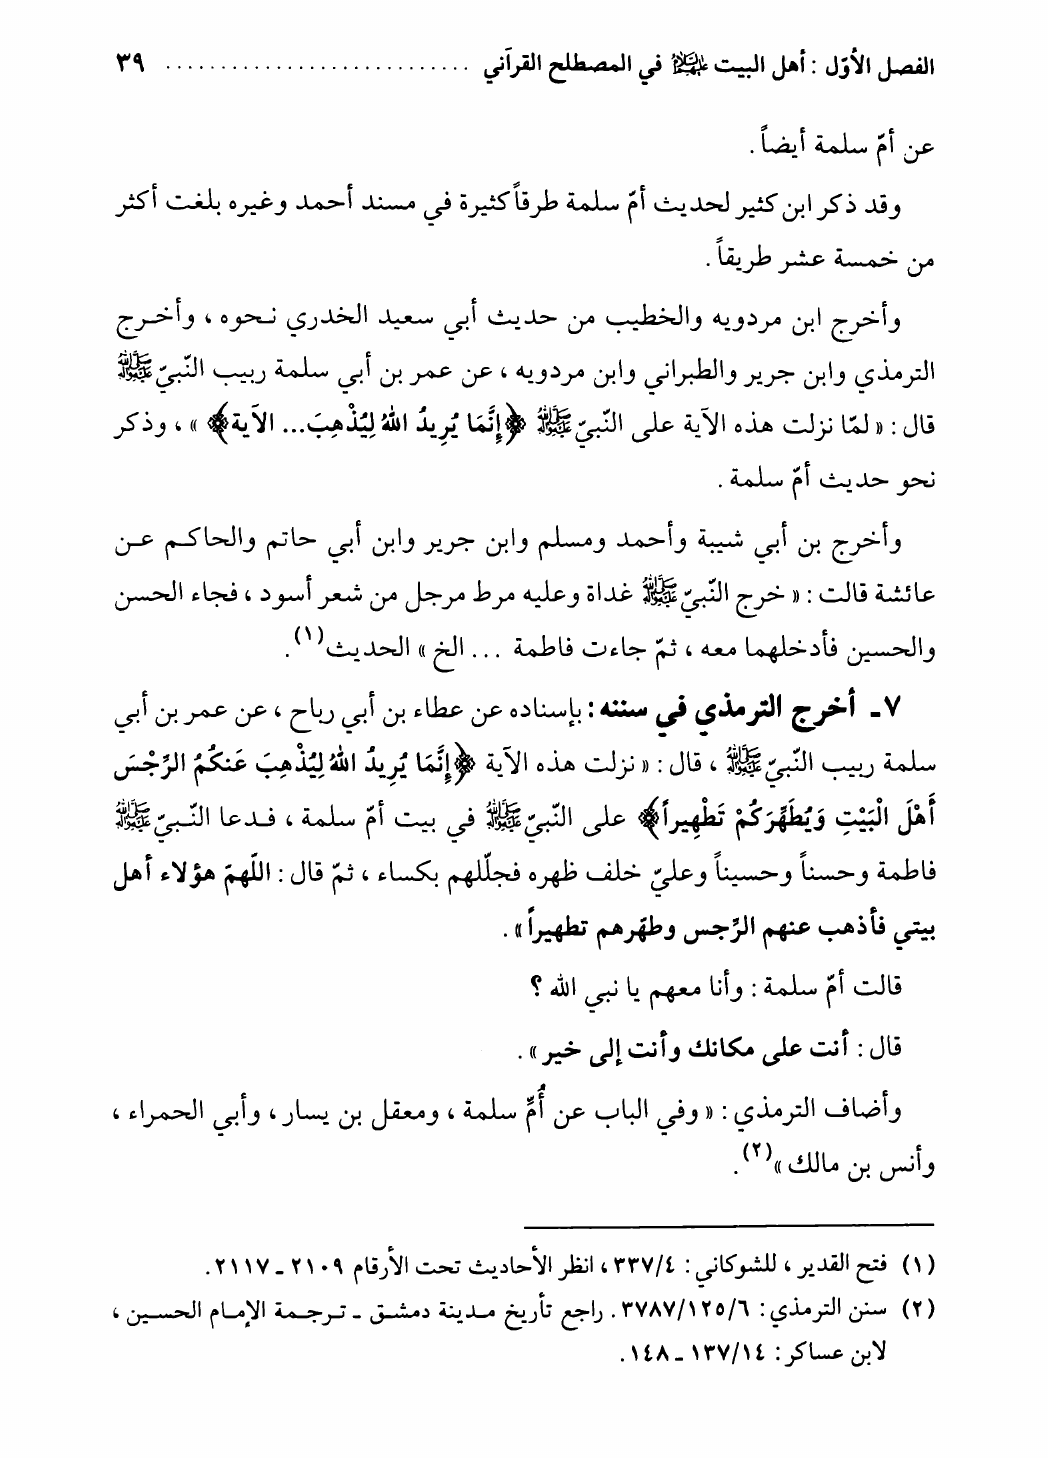 الفصل الأوّل : أهل البيت ﵈ في المصطلح القرآني ............................ ٣٩
عن أمّ سلمة أيضاً .
وقد ذكر ابن كثير لحديث أمّ سلمة طرقاً كثيرة في مسند أحمد وغيره بلغت أكثر
من خمسة عشر طريقاً .
وأخرج ابن مردويه والخطيب من حديث أبي سعيد الخدري نحوه ، وأخرج
الترمذي وابن جرير والطبراني وابن مردويه ، عن عمر بن أبي سلمة ربيب النّبيّ ﷺ
قال : « لمّا نزلت هذه الآية على النّبيّ ﷺ ﴿إِنَّمَا يُرِيدُ اللهُ لِيُذْهِبَ... الآية﴾ » ، وذكر
نحو حديث أمّ سلمة .
وأخرج بن أبي شيبة وأحمد ومسلم وابن جرير وابن أبي حاتم والحاكم عن
عائشة قالت : « خرج النّبيّ ﷺ غداة وعليه مرط مرجل من شعر أسود ، فجاء الحسن
والحسين فأدخلهما معه ، ثمّ جاءت فاطمة ... الخ » الحديث(١).
٧ ـ أخرج الترمذي في سننه : بإسناده عن عطاء بن أبي رباح ، عن عمر بن أبي
سلمة ربيب النّبيّ ﷺ ، قال : « نزلت هذه الآية ﴿إِنَّمَا يُرِيدُ اللهُ لِيُذْهِبَ عَنكُمُ الرِّجْسَ
أَهْلَ الْبَيْتِ وَيُطَهِّرَكُمْ تَطْهِيراً﴾ على النّبيّ ﷺ في بيت أمّ سلمة ، فدعا النّبيّ ﷺ
فاطمة وحسناً وحسيناً وعليّ خلف ظهره فجلّلهم بكساء ، ثمّ قال : اللّهمّ هؤلاء أهل
بيتي فأذهب عنهم الرِّجس وطهّرهم تطهيراً » .
قالت أمّ سلمة : وأنا معهم يا نبي الله ؟
قال : أنت على مكانك وأنت إلى خير » .
وأضاف الترمذي : « وفي الباب عن أُمِّ سلمة ، ومعقل بن يسار ، وأبي الحمراء ،
وأنس بن مالك »(٢).
(١) فتح القدير ، للشوكاني : ٣٣٧/٤ ، انظر الأحاديث تحت الأرقام ٢١٠٩ ـ ٢١١٧ .
(٢) سنن الترمذي : ٣٧٨٧/١٢٥/٦ . راجع تأريخ مدينة دمشق ـ ترجمة الإمام الحسين ،
لابن عساكر : ١٣٧/١٤ ـ ١٤٨ .